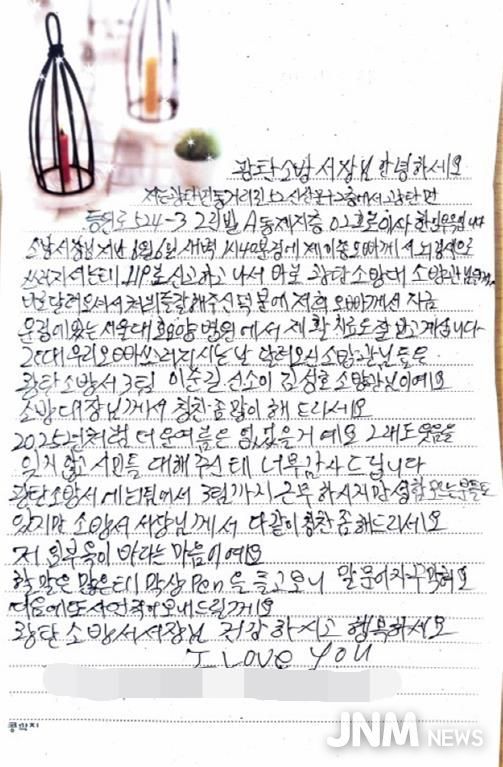 광탄소방서장님 안녕하세요
저는 광탄면
등원로 524-3 2리빌 A동 제지층 02호로 이사 한
소방서장님 지난 8월 6일 새벽 1시 40분경에 제 오빠께서 뇌경색으로
쓰러지셨는데 119로 신고하고 나서 바로 광탄소방대 소방관님
달려오셔서 처치를 잘해주신 덕분에 저희 오빠께선 지금
운정에 있는 서울대효요양병원에서 재활치료도 잘 받고 계십니다
그런대 우리오빠 쓰러지시는 날 달려오신 소방관님들은
광탄소방서 3팀 이순길 선소이 김성호 소방관님이예요
소방대장님께서 칭찬좀 많이 해 드리세요
2025년처럼 더운여름은 없었을거예요 그래도 웃음을
잊지않고 시민들 대해주신데 너무 감사드립니다
광탄소방서에는 1팀에서 3팀까지 근무하시지만 성함 모르는분들도
있지만 소방서 서장님께서 다같이 칭찬좀 해드리세요
저 원부욱이 바라는 마음이예요
할 말은 많은데 막상 Pen을 들고보니 말문이 자꾸 막혀요
다음에 또 사연 적어보내드릴게요
광탄소방서 서장님 건강하시고 행복하세요
I LOVE YOU
콩깍지
JNM NEWS